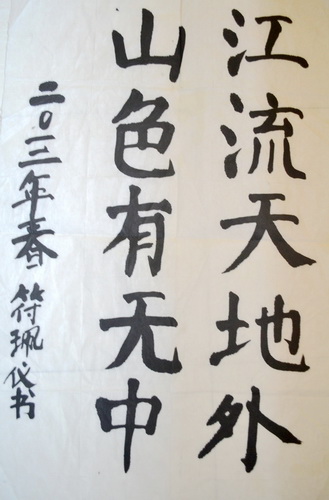 江流天地外
山色有无中
二〇一三年春 符珮仪书